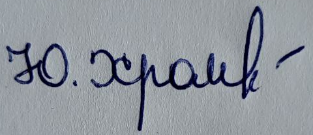 Ю. Храмк